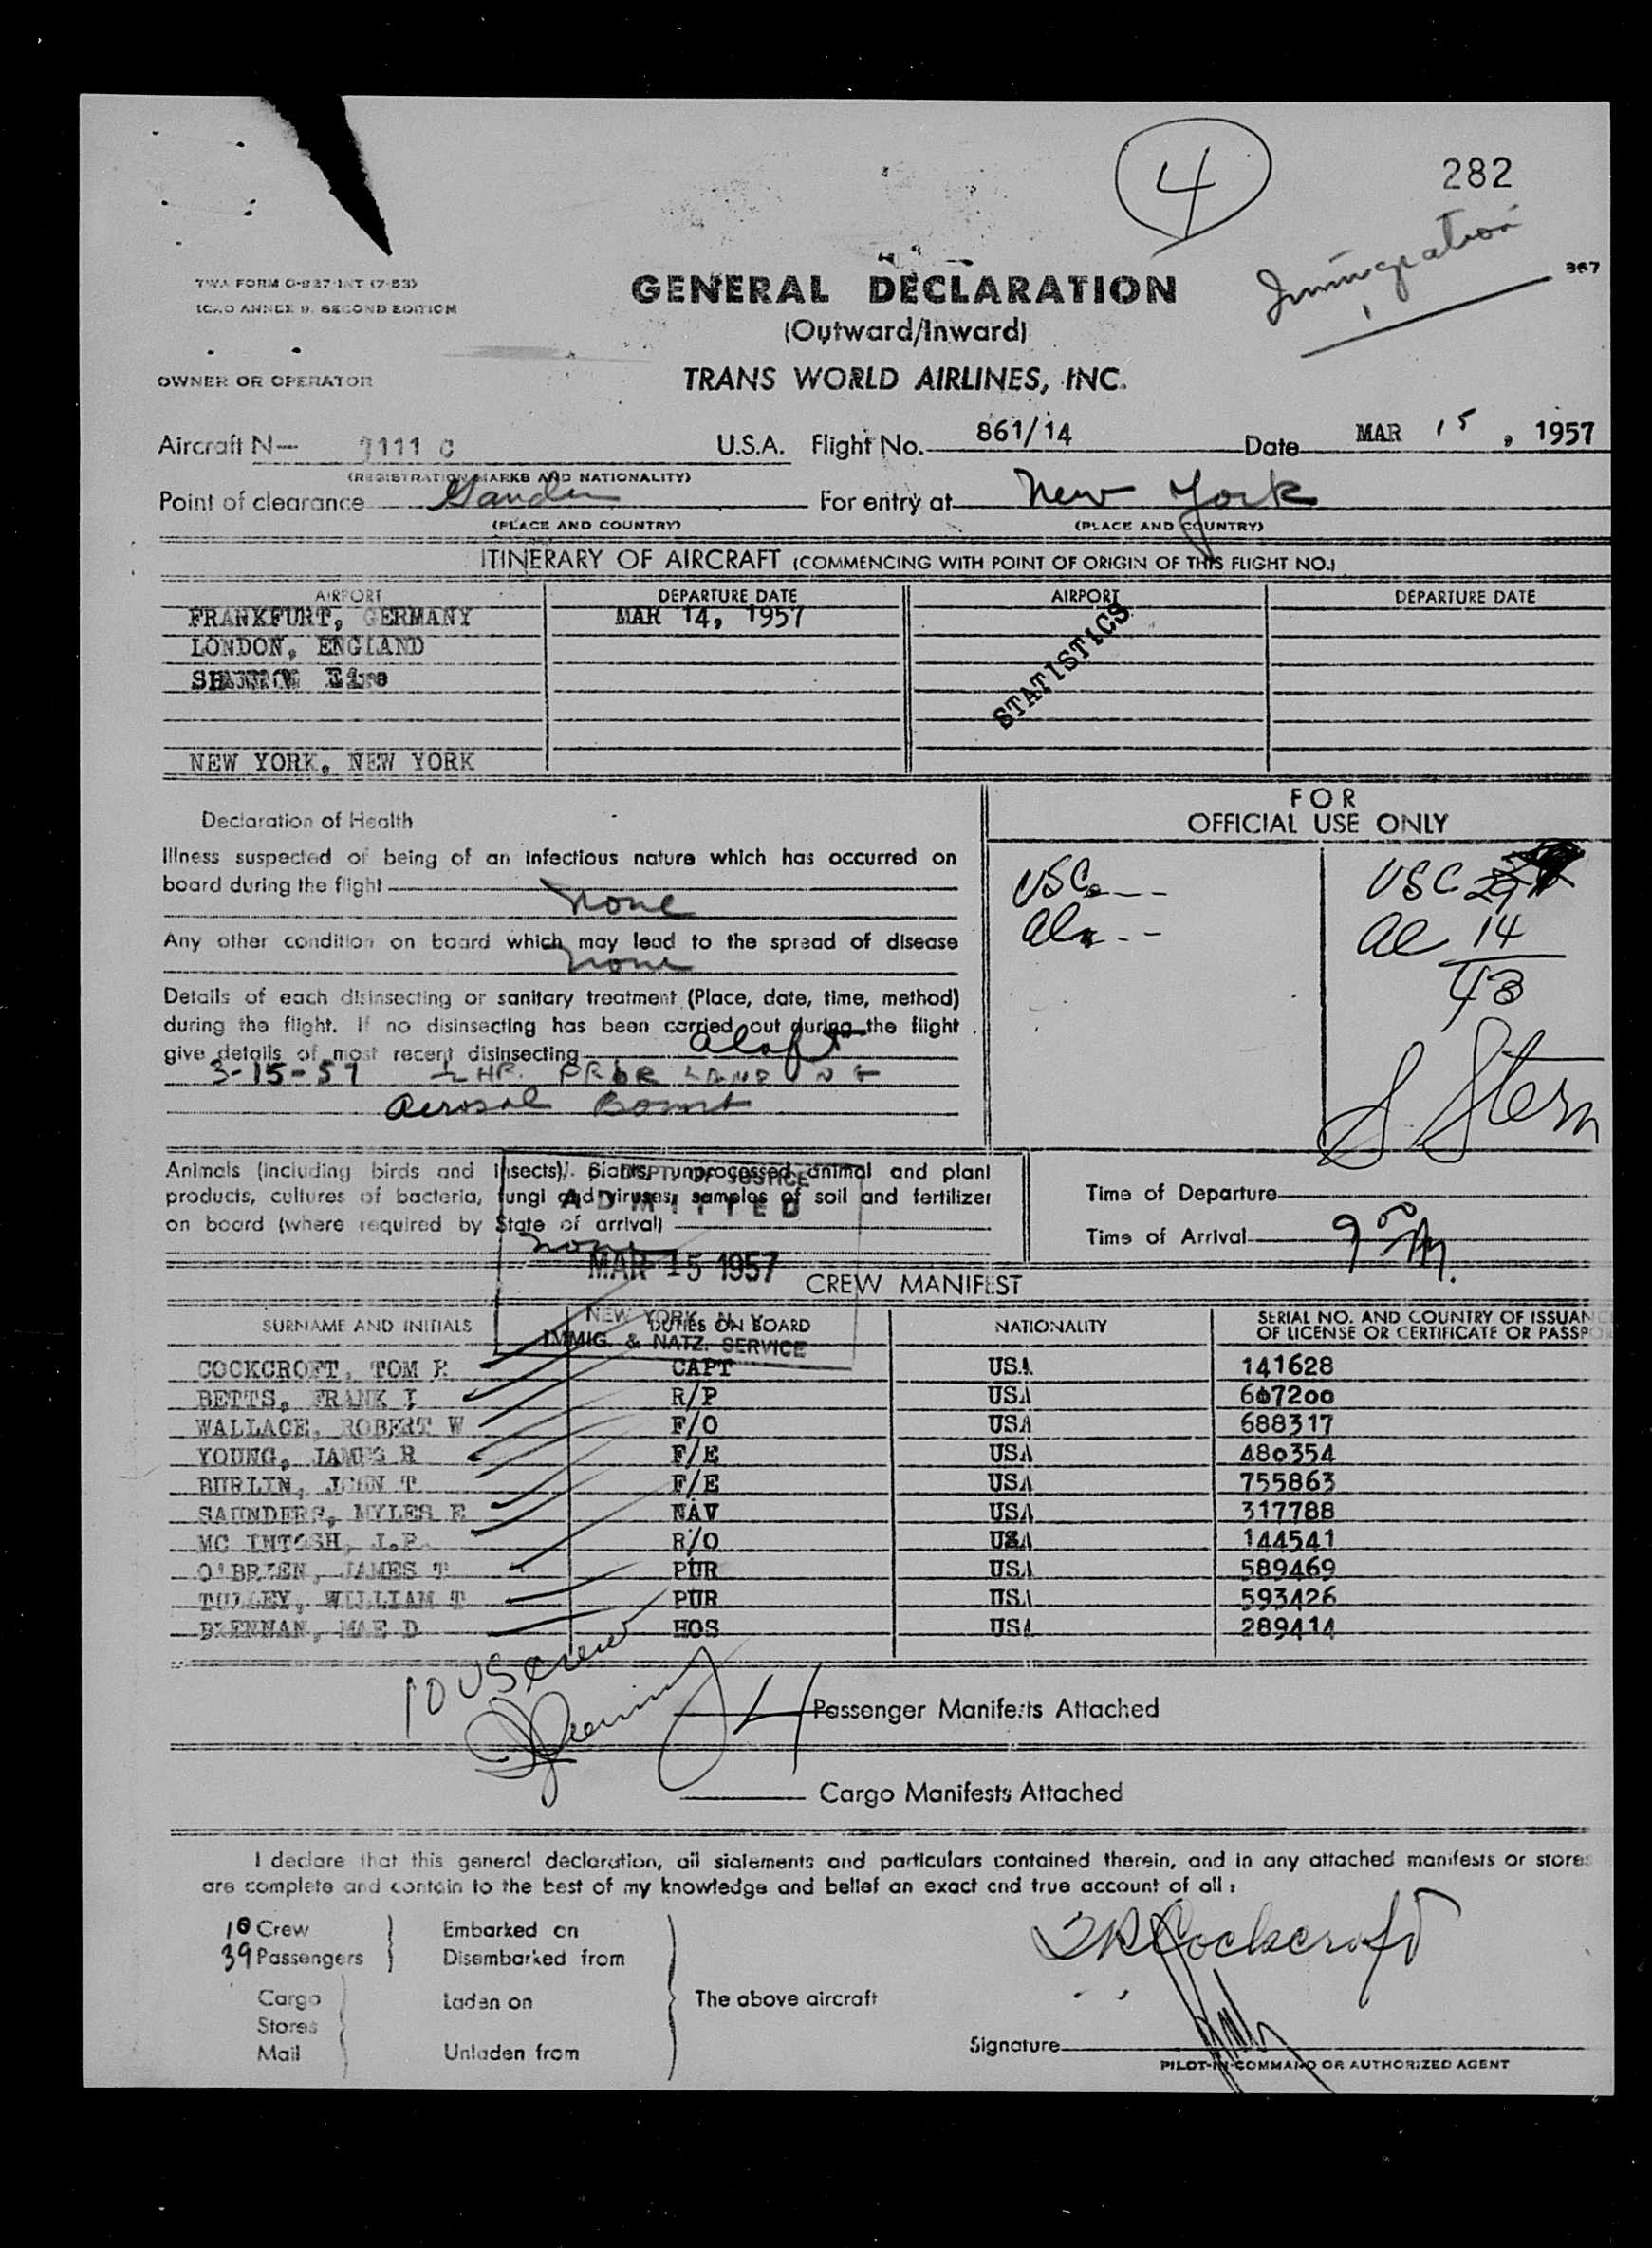 4
282
Immigration
867
TWA FORM O-927-INT (7-53)
ICAO ANNEX 9, SECOND EDITION
GENERAL DECLARATION
(Outward/Inward)
OWNER OR OPERATOR
TRANS WORLD AIRLINES, INC.
Aircraft N— 7111 C U.S.A. Flight No. 861/14 Date MAR 15, 1957
(REGISTRATION MARKS AND NATIONALITY)
Point of clearance Gander For entry at New York
(PLACE AND COUNTRY) (PLACE AND COUNTRY)
ITINERARY OF AIRCRAFT (COMMENCING WITH POINT OF ORIGIN OF THIS FLIGHT NO.)
AIRPORT DEPARTURE DATE AIRPORT DEPARTURE DATE
FRANKFURT, GERMANY MAR 14, 1957
LONDON, ENGLAND
SHANNON Eire
STATISTICS
NEW YORK, NEW YORK
FOR
OFFICIAL USE ONLY
Declaration of Health
Illness suspected of being of an infectious nature which has occurred on
board during the flight
none
Any other condition on board which may lead to the spread of disease
none
Details of each disinsecting or sanitary treatment (Place, date, time, method)
during the flight. If no disinsecting has been carried out during the flight
give details of most recent disinsecting aloft
3-15-57 ½ HR. PRIOR LANDING
Aerosol Bomb
USC.--
Al.--
USC 29
Al 14
43
S Stern
Animals (including birds and insects), plants, unprocessed animal and plant
products, cultures of bacteria, fungi and viruses, samples of soil and fertilizer
on board (where required by State of arrival)
none
DEPT. OF JUSTICE
ADMITTED
MAR 15 1957
NEW YORK, N. Y.
IMMIG. & NATZ. SERVICE
Time of Departure
Time of Arrival 9 00 PM.
CREW MANIFEST
SURNAME AND INITIALS DUTIES ON BOARD NATIONALITY SERIAL NO. AND COUNTRY OF ISSUANCE
OF LICENSE OR CERTIFICATE OR PASSPOR
COCKCROFT, TOM R CAPT USA 141628
BETTS, FRANK I R/P USA 607200
WALLACE, ROBERT W F/O USA 688317
YOUNG, JAMES R F/E USA 480354
BURLIN, JOHN T F/E USA 755863
SAUNDERS, MYLES E NAV USA 317788
MC INTOSH, J.P. R/O USA 144541
O'BRIEN, JAMES T PUR USA 589469
TULLEY, WILLIAM T PUR USA 593426
BRENNAN, MAE D HOS USA 289414
10 US crew
4 Passenger Manifests Attached
Cargo Manifests Attached
I declare that this general declaration, all statements and particulars contained therein, and in any attached manifests or stores
are complete and contain to the best of my knowledge and belief an exact and true account of all:
10 Crew Embarked on
39 Passengers Disembarked from
Cargo Laden on The above aircraft
Stores
Mail Unladen from
TR Cockcroft
Signature
PILOT-IN-COMMAND OR AUTHORIZED AGENT